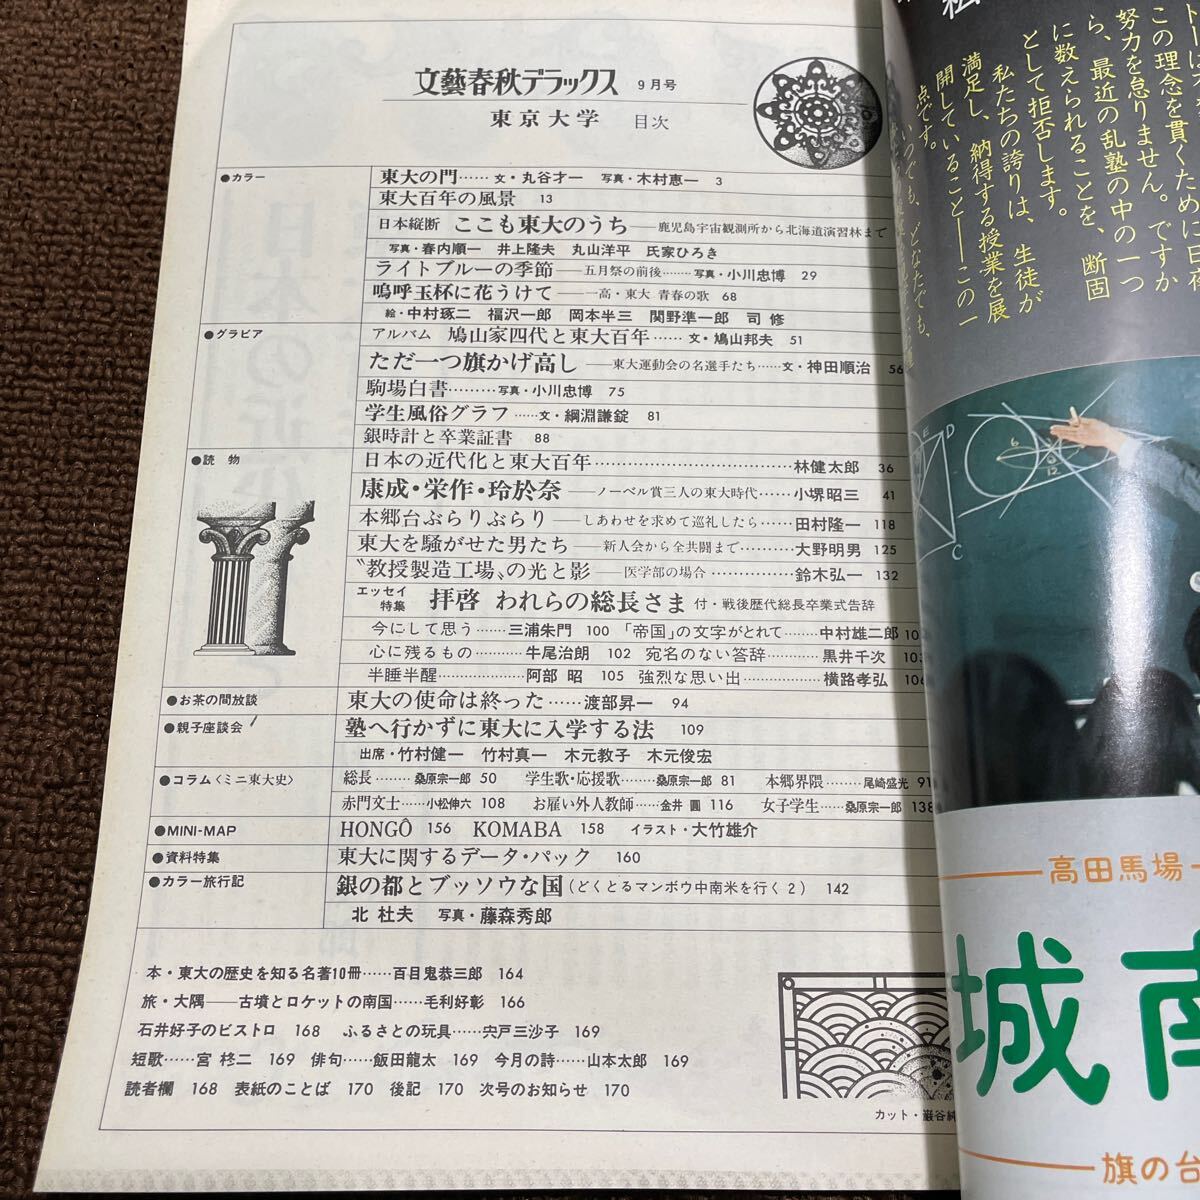 文藝春秋デラックス 9月号
東京大学 目次
●カラー
東大の門……文・丸谷才一 写真・木村恵一 3
東大百年の風景 13
日本縦断 ここも東大のうち——鹿児島宇宙観測所から北海道演習林まで
写真・春内順一 井上隆夫 丸山洋平 氏家ひろき
ライトブルーの季節——五月祭の前後………写真・小川忠博 29
嗚呼玉杯に花うけて——一高・東大 青春の歌 68
絵・中村琢二 福沢一郎 岡本半三 関野準一郎 司 修
●グラビア
アルバム 鳩山家四代と東大百年……文・鳩山邦夫 51
ただ一つ旗かげ高し——東大運動会の名選手たち……文・神田順治 56
駒場白書………写真・小川忠博 75
学生風俗グラフ……文・綱淵謙錠 81
銀時計と卒業証書 88
●読物
日本の近代化と東大百年………………………………林健太郎 36
康成・栄作・玲於奈——ノーベル賞三人の東大時代……小堺昭三 41
本郷台ぶらりぶらり——しあわせを求めて巡礼したら……田村隆一 118
東大を騒がせた男たち——新人会から全共闘まで……大野明男 125
〝教授製造工場〟の光と影——医学部の場合……………鈴木弘一 132
エッセイ特集 拝啓 われらの総長さま 付・戦後歴代総長卒業式告辞
今にして思う……三浦朱門 100 「帝国」の文字がとれて……中村雄二郎
心に残るもの………牛尾治朗 102 宛名のない答辞…………黒井千次 103
半睡半醒…………………阿部 昭 105 強烈な思い出…………横路孝弘 106
●お茶の間放談
東大の使命は終った……渡部昇一 94
●親子座談会
塾へ行かずに東大に入学する法 109
出席・竹村健一 竹村真一 木元教子 木元俊宏
●コラム〈ミニ東大史〉
総長……桑原宗一郎 50 学生歌・応援歌……桑原宗一郎 81 本郷界隈……尾崎盛光 91
赤門文士……小松伸六 108 お雇い外人教師……金井 圓 116 女子学生……桑原宗一郎 138
●MINI-MAP
HONGÔ 156 KOMABA 158 イラスト・大竹雄介
●資料特集
東大に関するデータ・パック 160
●カラー旅行記
銀の都とブッソウな国(どくとるマンボウ中南米を行く2) 142
北 杜夫 写真・藤森秀郎
本・東大の歴史を知る名著10冊……百目鬼恭三郎 164
旅・大隅——古墳とロケットの南国……毛利好彰 166
石井好子のビストロ 168 ふるさとの玩具……宍戸三沙子 169
短歌……宮 柊二 169 俳句……飯田龍太 169 今月の詩……山本太郎 169
読者欄 168 表紙のことば 170 後記 170 次号のお知らせ 170
カット・巌谷純
この理念を貫くために日夜
努力を怠りません。ですか
ら、最近の乱塾の中の一つ
に数えられることを、断固
として拒否します。
私たちの誇りは、生徒が
満足し、納得する授業を展
開していること——この一
点です。
いつでも、どなたでも、
E
D
C
高田馬場
城南
旗の台